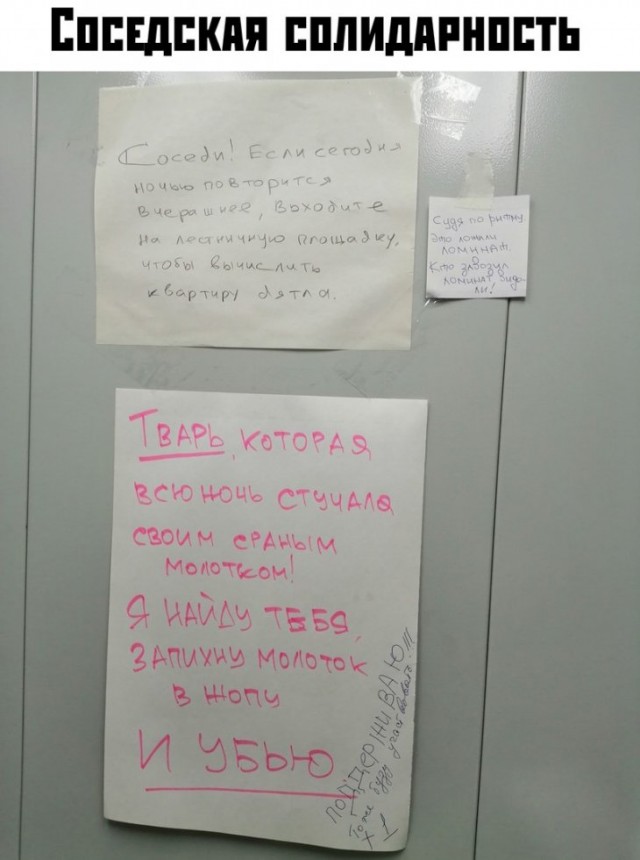 Соседская солидарность
Соседи! Если сегодня
ночью повторится
вчерашнее, выходите
на лестничную площадку,
чтобы вычислить
квартиру дятла.
Судя по ритму
Это ложили
ломинат.
Кто завозил
ломинат виде-
ли!
Тварь, которая
всю ночь стучала
своим сраным
молотком!
Я найду тебя,
запихну молоток
в жопу
и убью
поддерживаю
Тоже буду участвовать!!!